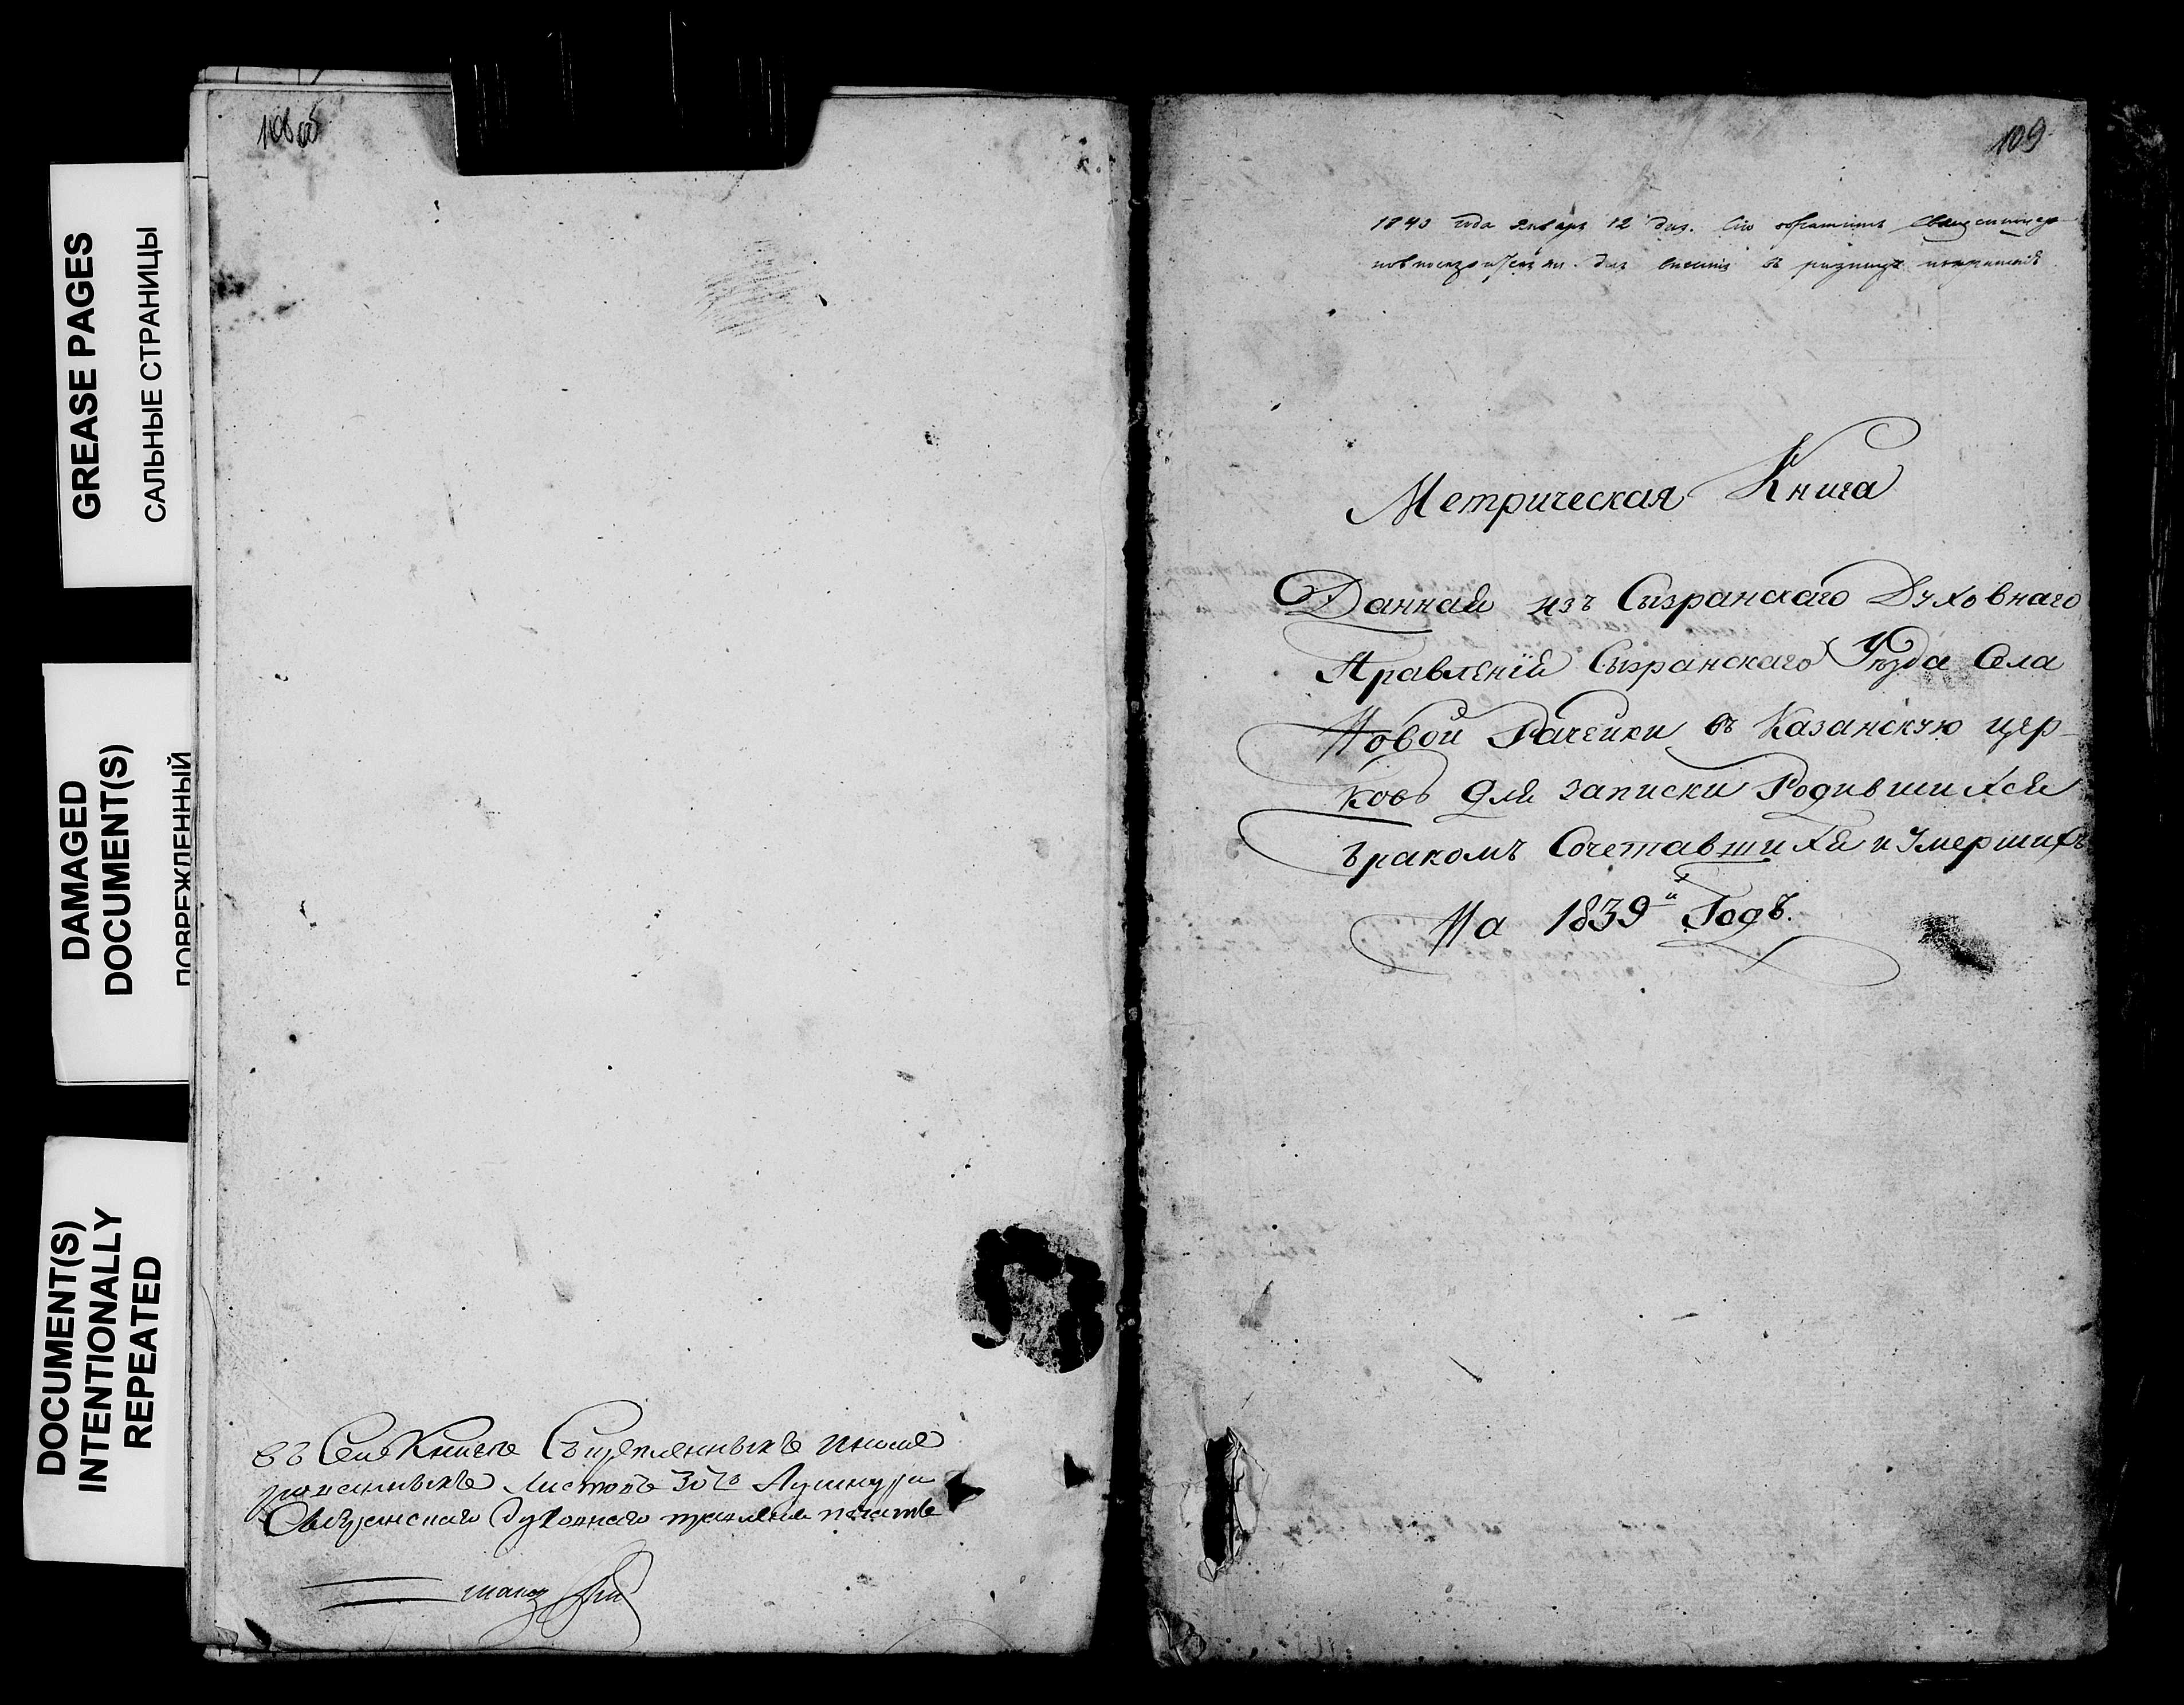 GREASE PAGES
САЛЬНЫЕ СТРАНИЦЫ
DAMAGED
DOCUMENT(S)
ПОВРЕЖДЕННЫЙ
DOCUMENT(S)
INTENTIONALLY
REPEATED
108об
въ Сей Книге
Листовъ 30ть
духовнаго правления печать
109
1840 года января 12 дня. Сію
въ ризницу
Метрическая Книга
Данная изъ Сызранскаго Духовнаго
Правленія Сызранскаго Уѣзда Села
Новой Рачейки въ Казанскую цер-
ковь для записки Родившихся
бракомъ Сочетавшихся и умершихъ
На 1839й Годъ.